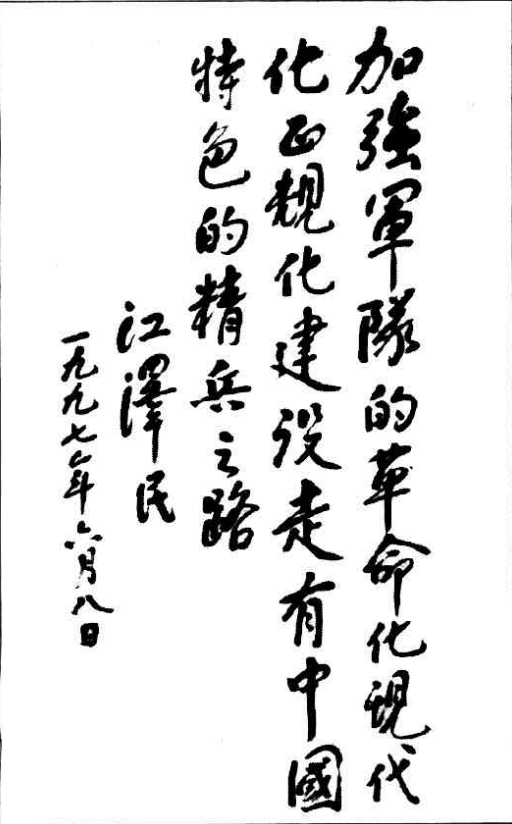 加強軍隊的革命化現代
化正規化建设走有中國
特色的精兵之路
江澤民
一九九七年六月八日